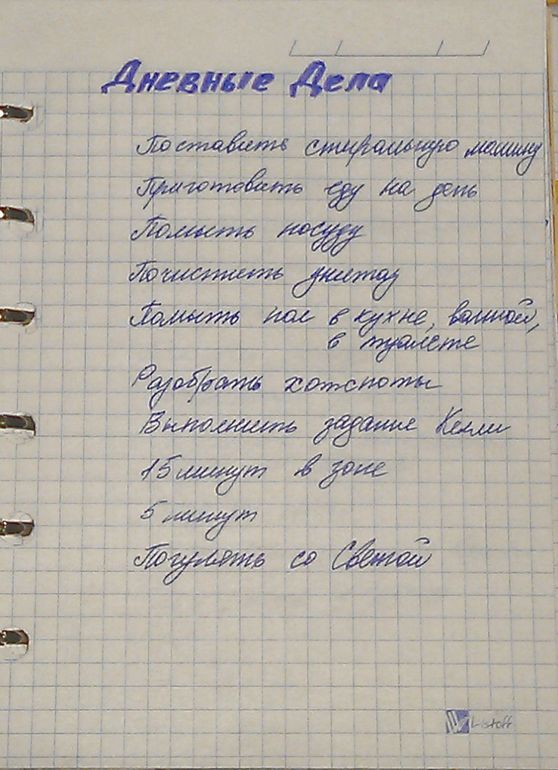 Дневные Дела
Поставить стиральную машину
Приготовить еду на день
Помыть посуду
Почистить унитаз
Помыть пол в кухне, ванной,
в туалете
Разобрать хотспоты
Выполнить задание Келли
15 минут в зоне
5 минут
Погулять со Светой
Listoff